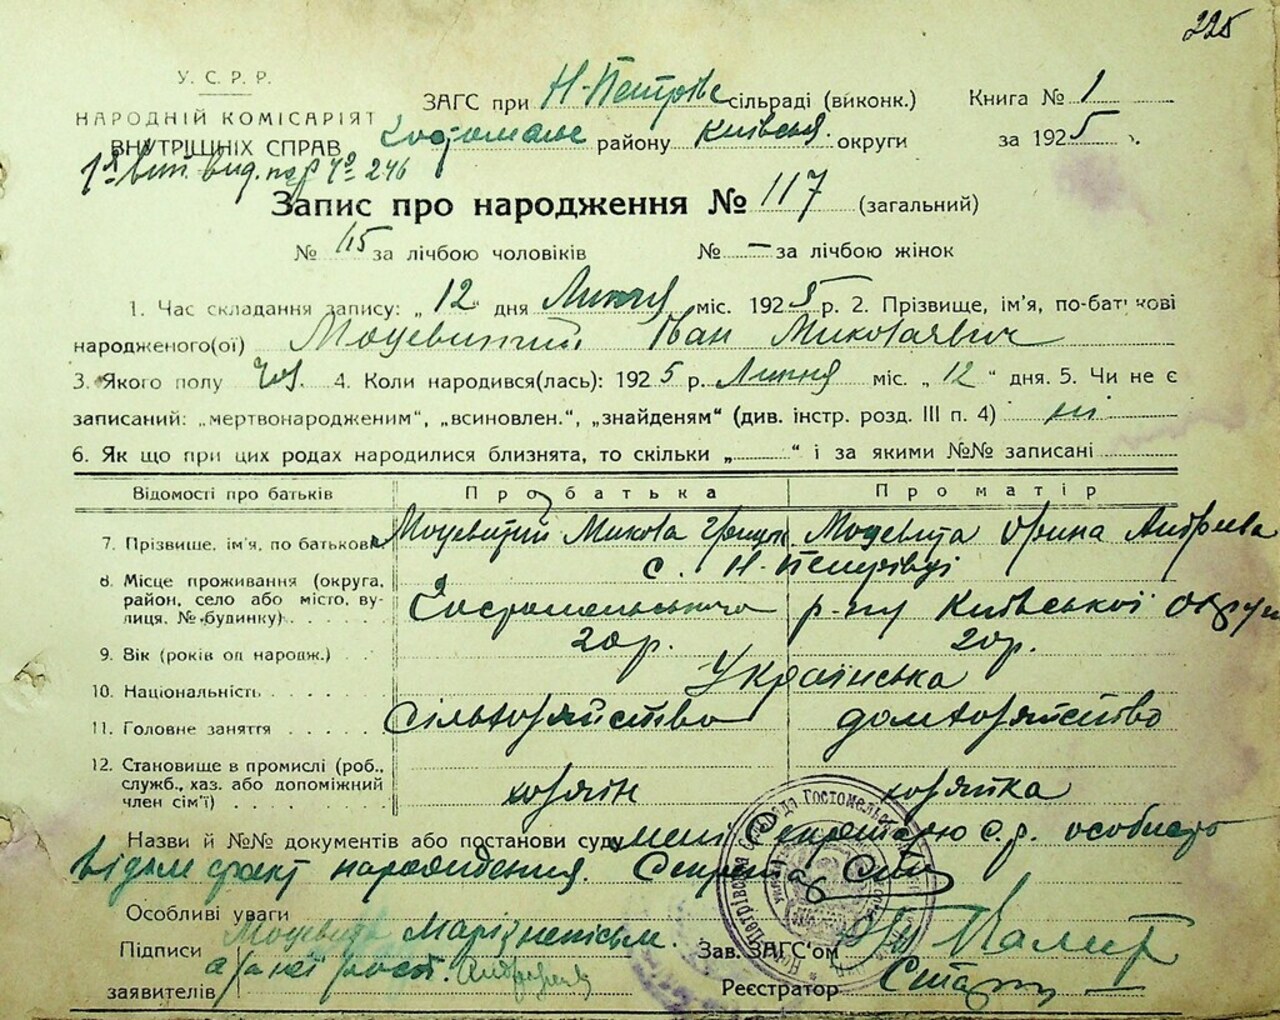 225
У. С. Р. Р.
НАРОДНІЙ КОМІСАРІЯТ
ВНУТРІШНІХ СПРАВ
ЗАГС при Н-Петрівс сільраді (виконк.)
Книга № 1
району Київськ. округи
за 1925 р.
1й вип. вид. № 246
Запис про народження № 117 (загальний)
№ 115 за лічбою чоловіків № — за лічбою жінок
1. Час складання запису: „12“ дня Липня міс. 1925 р. 2. Прізвище, ім'я, по-батькові
народженого(ої) Моцевитий Іван Миколаєвич
3. Якого полу чол. 4. Коли народився(лась): 1925 р. Липня міс. „12“ дня. 5. Чи не є
записаний: „мертвонародженим“, „всиновлен.“, „знайденям“ (див. інстр. розд. III п. 4) ні
6. Як що при цих родах народилися близнята, то скільки „ “ і за якими №№ записані
Відомості про батьків Про батька Про матір
7. Прізвище, ім'я, по батькові Моцевитий Микола Грицьк. Моцевита Орина Андрєєва
с. Н-Петрівці
8. Місце проживання (округа, район, село або місто, вулиця, № будинку) Гостомельського р-ну Київської округи
9. Вік (років од народж.) 20 р. 20 р.
10. Національність Українська
11. Головне заняття Сільхозяйство домхозяйство
12. Становище в промислі (роб., служб., хаз. або допоміжний член сім'ї) хозяїн хозяйка
Назви й №№ документів або постанови суду мені Секретарю с.р. особисто
відом факт народидення. Секретар
Особливі уваги
Підписи Моцевита
заявителів
Зав. ЗАГС'ом
Реєстратор